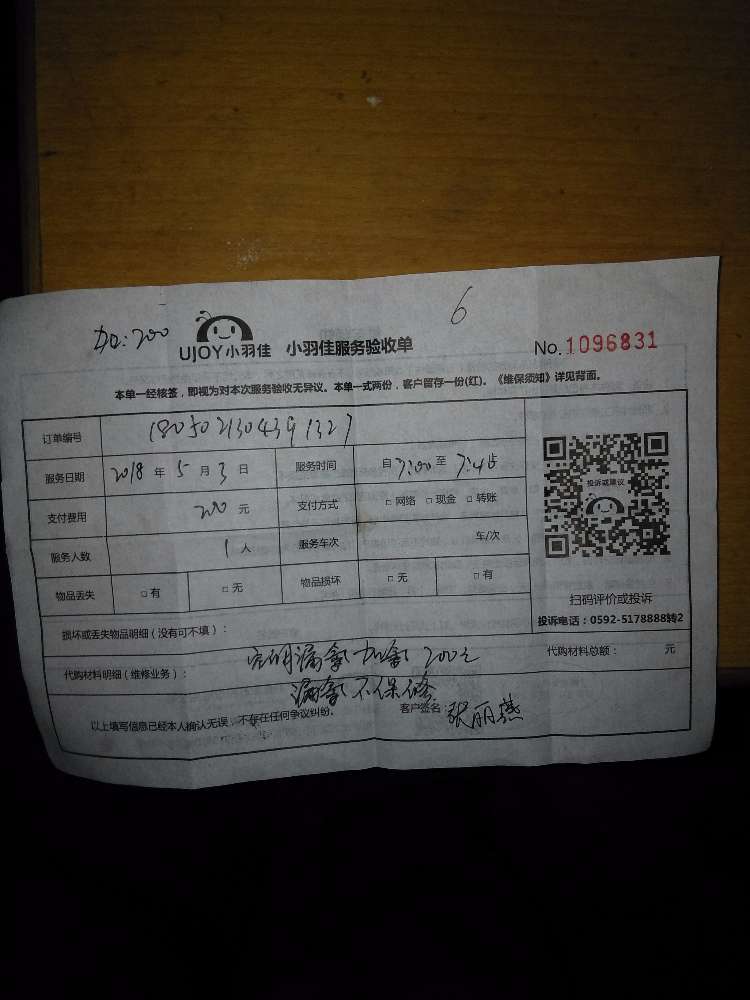 加:200
6
UJOY小羽佳 小羽佳服务验收单
No.1096831
本单一经核签，即视为对本次服务验收无异议。本单一式两份，客户留存一份(红)。《维保须知》详见背面。
订单编号 1805021304391327
服务日期 2018 年 5 月 3 日 服务时间 自 7:00 至 7:45
支付费用 200 元 支付方式 □ 网络 □ 现金 □ 转账
服务人数 1 人 服务车次 车/次
物品丢失 □ 有 □ 无 物品损坏 □ 无 □ 有
投诉或建议
扫码评价或投诉
投诉电话：0592-5178888转2
损坏或丢失物品明细（没有可不填）：
代购材料明细（维修业务）： 漏氟 加氟 200元 代购材料总额： 元
漏氟不保修
以上填写信息已经本人确认无误，不存在任何争议纠纷。 客户签名： 张丽燕